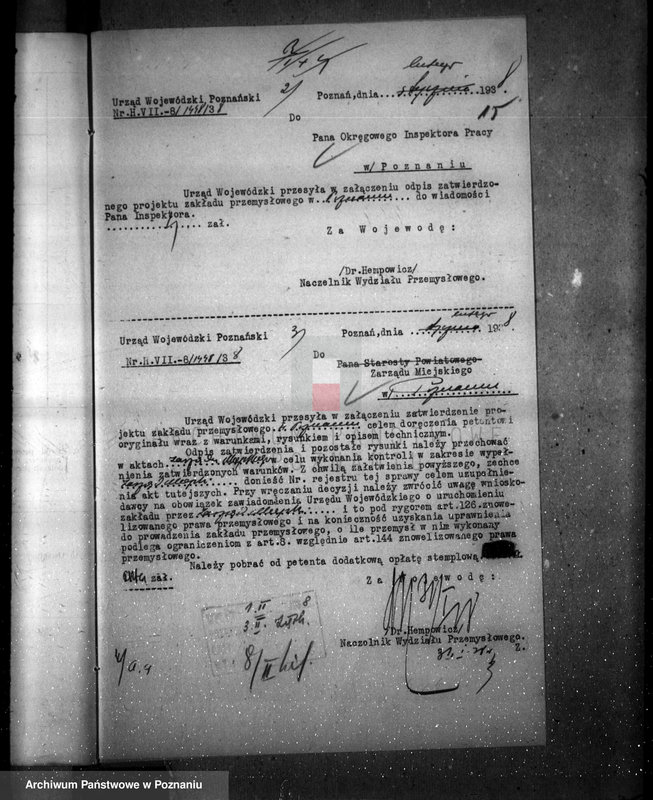 lutego
2/ Poznań,dnia....stycznia....1938.
Urząd Wojewódzki Poznański
Nr.H.VII.-8/1448/38
15
Do
Pana Okręgowego Inspektora Pracy
w/Poznaniu
Urząd Wojewódzki przesyła w załączeniu odpis zatwierdzo-
nego projektu zakładu przemysłowego w..Poznaniu... do wiadomości
Pana Inspektora.
........1/... zał.
Za Wojewodę:
/Dr.Hempowicz/
Naczelnik Wydziału Przemysłowego.
lutego
Urząd Wojewódzki Poznański 3/ Poznań,dnia ..stycznia.. 1938
Nr.H.VII.-8/1448/38
Do
Pana Starosty Powiatowego
Zarządu Miejskiego
w/ Poznaniu
Urząd Wojewódzki przesyła w załączeniu zatwierdzenie pro-
jektu zakładu przemysłowego.w Poznaniu celem doręczenia petentowi
oryginału wraz z warunkami, rysunkiem i opisem technicznym.
Odpis zatwierdzenia i pozostałe rysunki należy przechować
w aktach.... w celu wykonania kontroli w zakresie wypeł-
nienia zatwierdzonych warunków. Z chwilą załatwienia powyższego, zechce
...... donieść Nr. rejestru tej sprawy celem uzupełnie-
nia akt tutejszych. Przy wręczaniu decyzji należy zwrócić uwagę wniosko-
dawcy na obowiązek zawiadomienia Urzędu Wojewódzkiego o uruchomieniu
zakładu przez...... i to pod rygorem art.126.znowe-
lizowanego prawa przemysłowego i na konieczność uzyskania uprawnienia
do prowadzenia zakładu przemysłowego, o ile przemysł w nim wykonany
podlega ograniczeniom z art.8. względnie art.144 znowelizowanego prawa
przemysłowego.
Należy pobrać od petenta dodatkową opłatę stemplową
zał.
Za Wojewodę:
1.II 8
3.II.
8/II
/Dr.Hempowicz/
Naczelnik Wydziału Przemysłowego.
Z.
4/ a.a
Archiwum Państwowe w Poznaniu